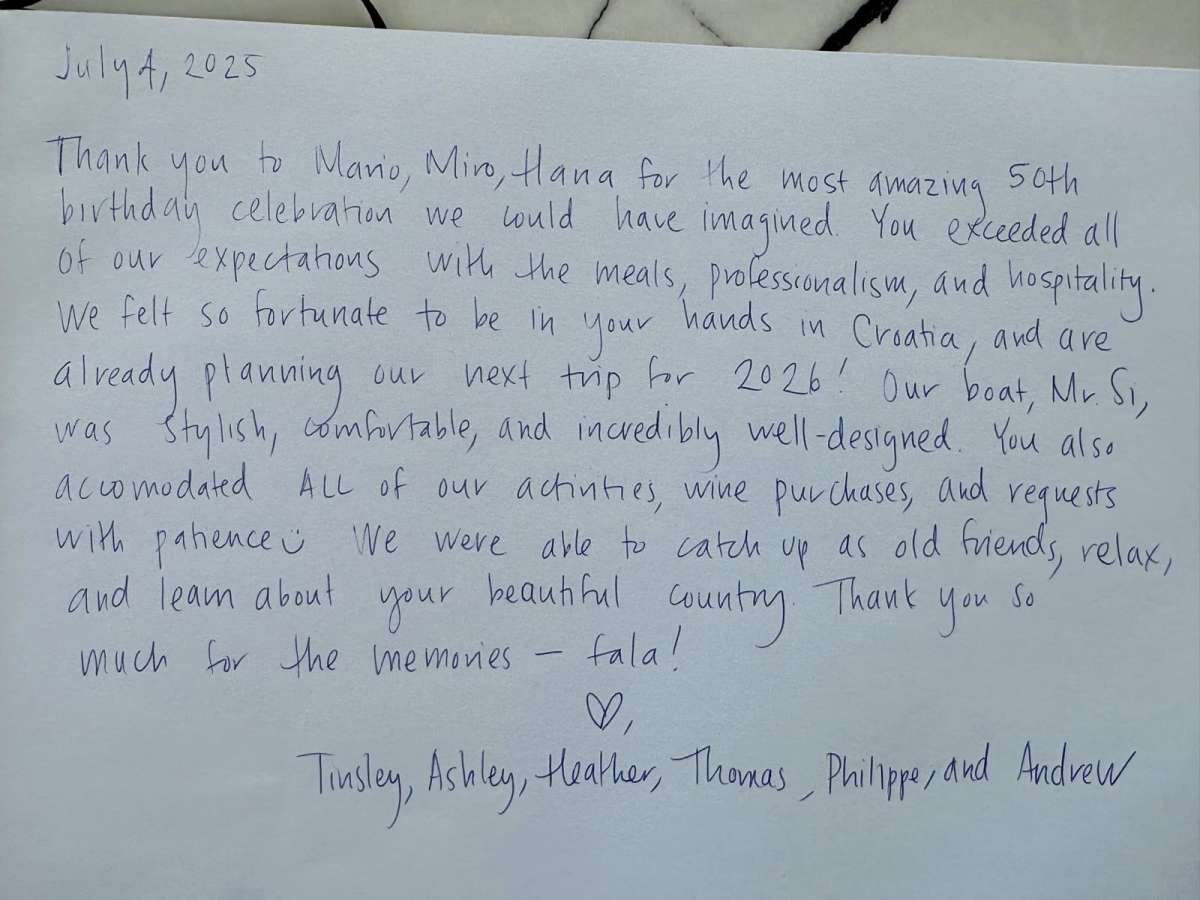 July 4, 2025
Thank you to Mario, Miro, Hana for the most amazing 50th
birthday celebration we could have imagined. You exceeded all
of our expectations with the meals, professionalism, and hospitality.
We felt so fortunate to be in your hands in Croatia, and are
already planning our next trip for 2026! Our boat, Mr. Si,
was stylish, comfortable, and incredibly well-designed. You also
accomodated ALL of our activities, wine purchases, and requests
with patience ☺ We were able to catch up as old friends, relax,
and learn about your beautiful country. Thank you so
much for the memories – fala!
♡,
Tinsley, Ashley, Heather, Thomas, Philippe, and Andrew